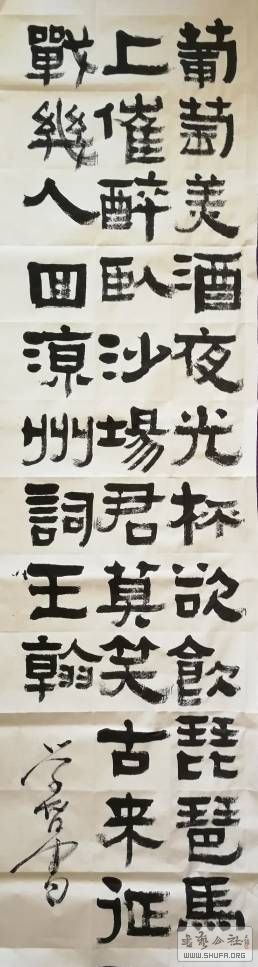 葡萄美酒夜光杯欲飲琵琶馬
上催醉臥沙場君莫笑古来征
戰幾人回涼州詞王翰
书艺公社
WWW.SHUFA.ORG